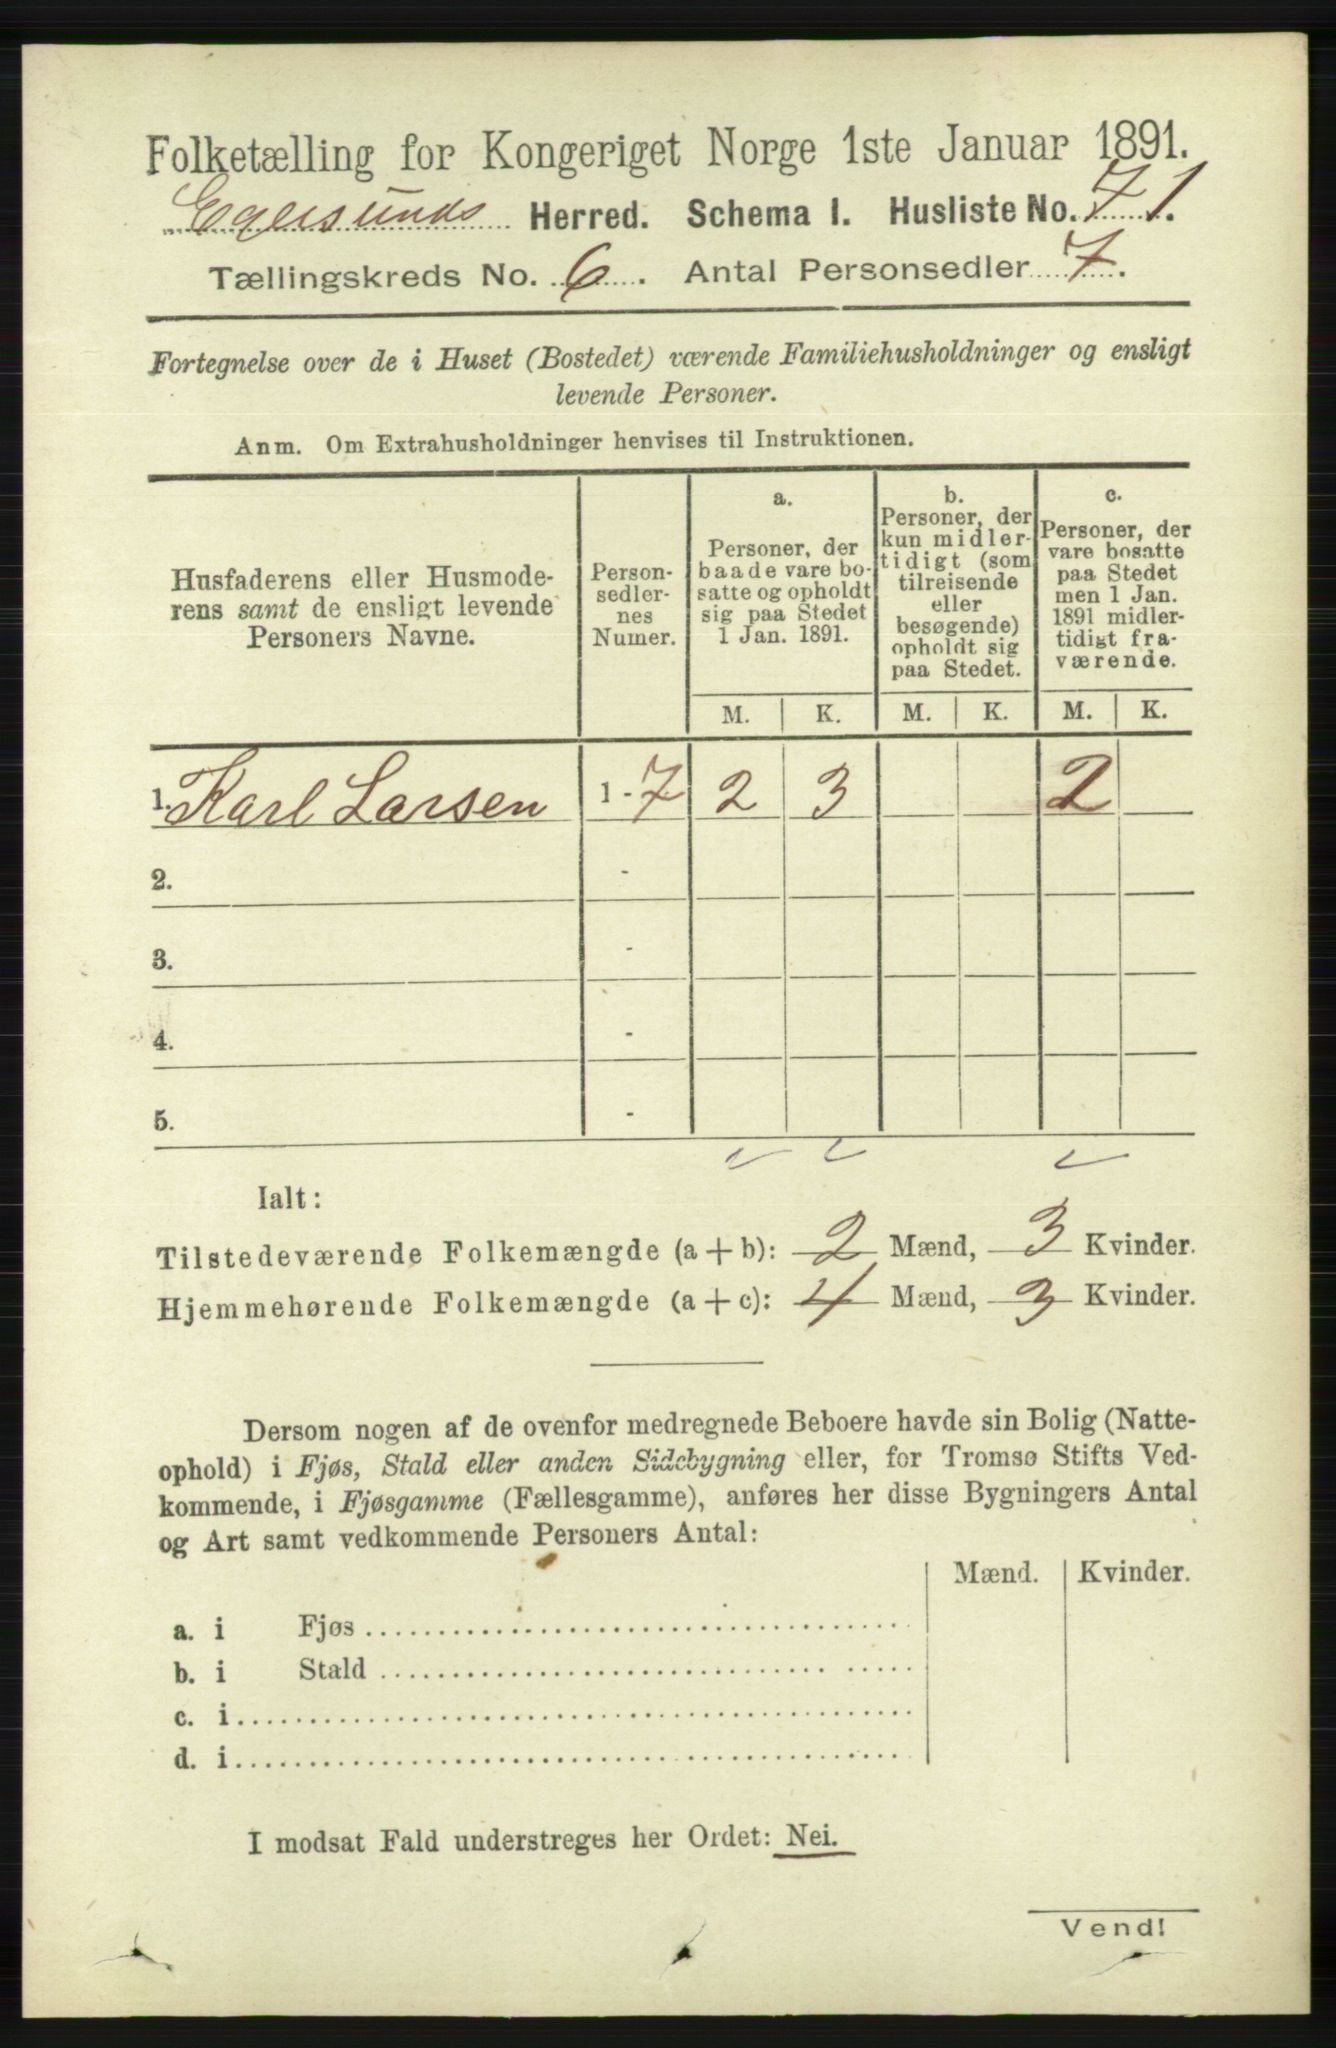 Folketælling for Kongeriget Norge 1ste Januar 1891.
Egersunds Herred. Schema I. Husliste No. 71.
Tællingskreds No. 6. Antal Personsedler 7.
Fortegnelse over de i Huset (Bostedet) værende Familiehusholdninger og ensligt
levende Personer.
Anm. Om Extrahusholdninger henvises til Instruktionen.
Husfaderens eller Husmode-
rens samt de ensligt levende
Personers Navne.
Person-
sedler-
nes
Numer.
a.
Personer, der
baade vare bo-
satte og opholdt
sig paa Stedet
1 Jan. 1891.
b.
Personer, der
kun midler-
tidigt (som
tilreisende
eller
besøgende)
opholdt sig
paa Stedet.
c.
Personer, der
vare bosatte
paa Stedet
men 1 Jan.
1891 midler-
tidigt fra-
værende.
M. K. M. K. M. K.
1. Karl Larsen 1 - 7 2 3 2
2. -
3. -
4. -
5. -
Ialt:
Tilstedeværende Folkemængde (a + b): 2 Mænd, 3 Kvinder.
Hjemmehørende Folkemængde (a + c): 4 Mænd, 3 Kvinder.
Dersom nogen af de ovenfor medregnede Beboere havde sin Bolig (Natte-
ophold) i Fjøs, Stald eller anden Sidebygning eller, for Tromsø Stifts Ved-
kommende, i Fjøsgamme (Fællesgamme), anføres her disse Bygningers Antal
og Art samt vedkommende Personers Antal:
Mænd. Kvinder.
a. i Fjøs
b. i Stald
c. i
d. i
I modsat Fald understreges her Ordet: Nei.
Vend!